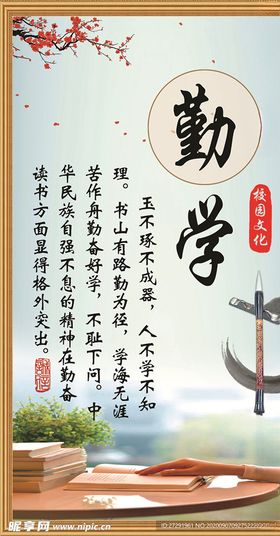 勤学
校园文化
玉不琢不成器，人不学不知
理。书山有路勤为径，学海无涯
苦作舟勤奋好学，不耻下问。中
华民族自强不息的精神在勤奋
读书方面显得格外突出。
昵享网 www.nipic.cn